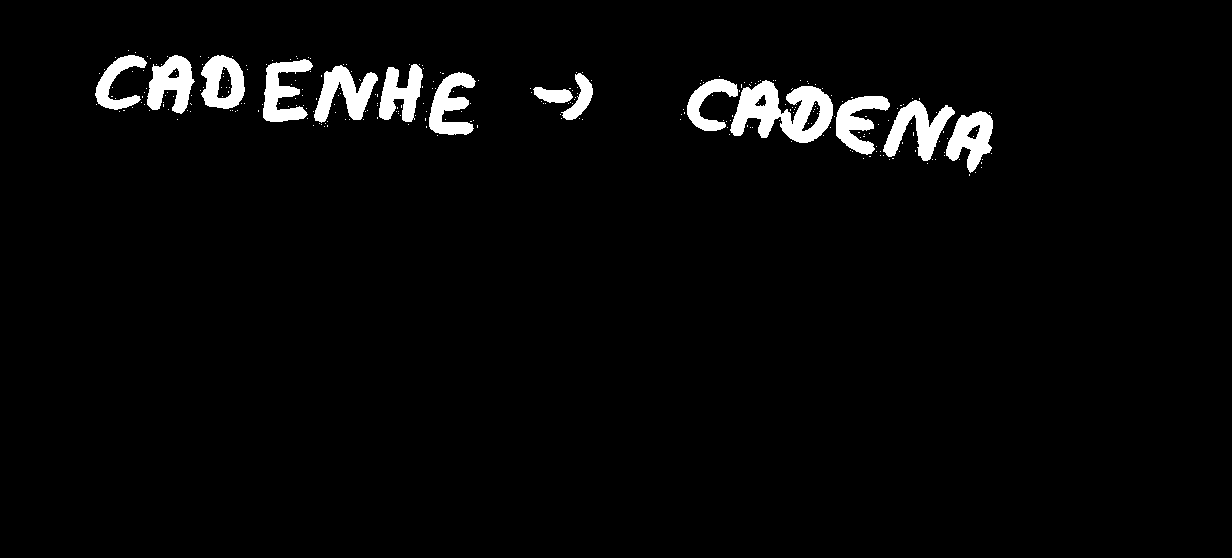 CADENHE → CADENA